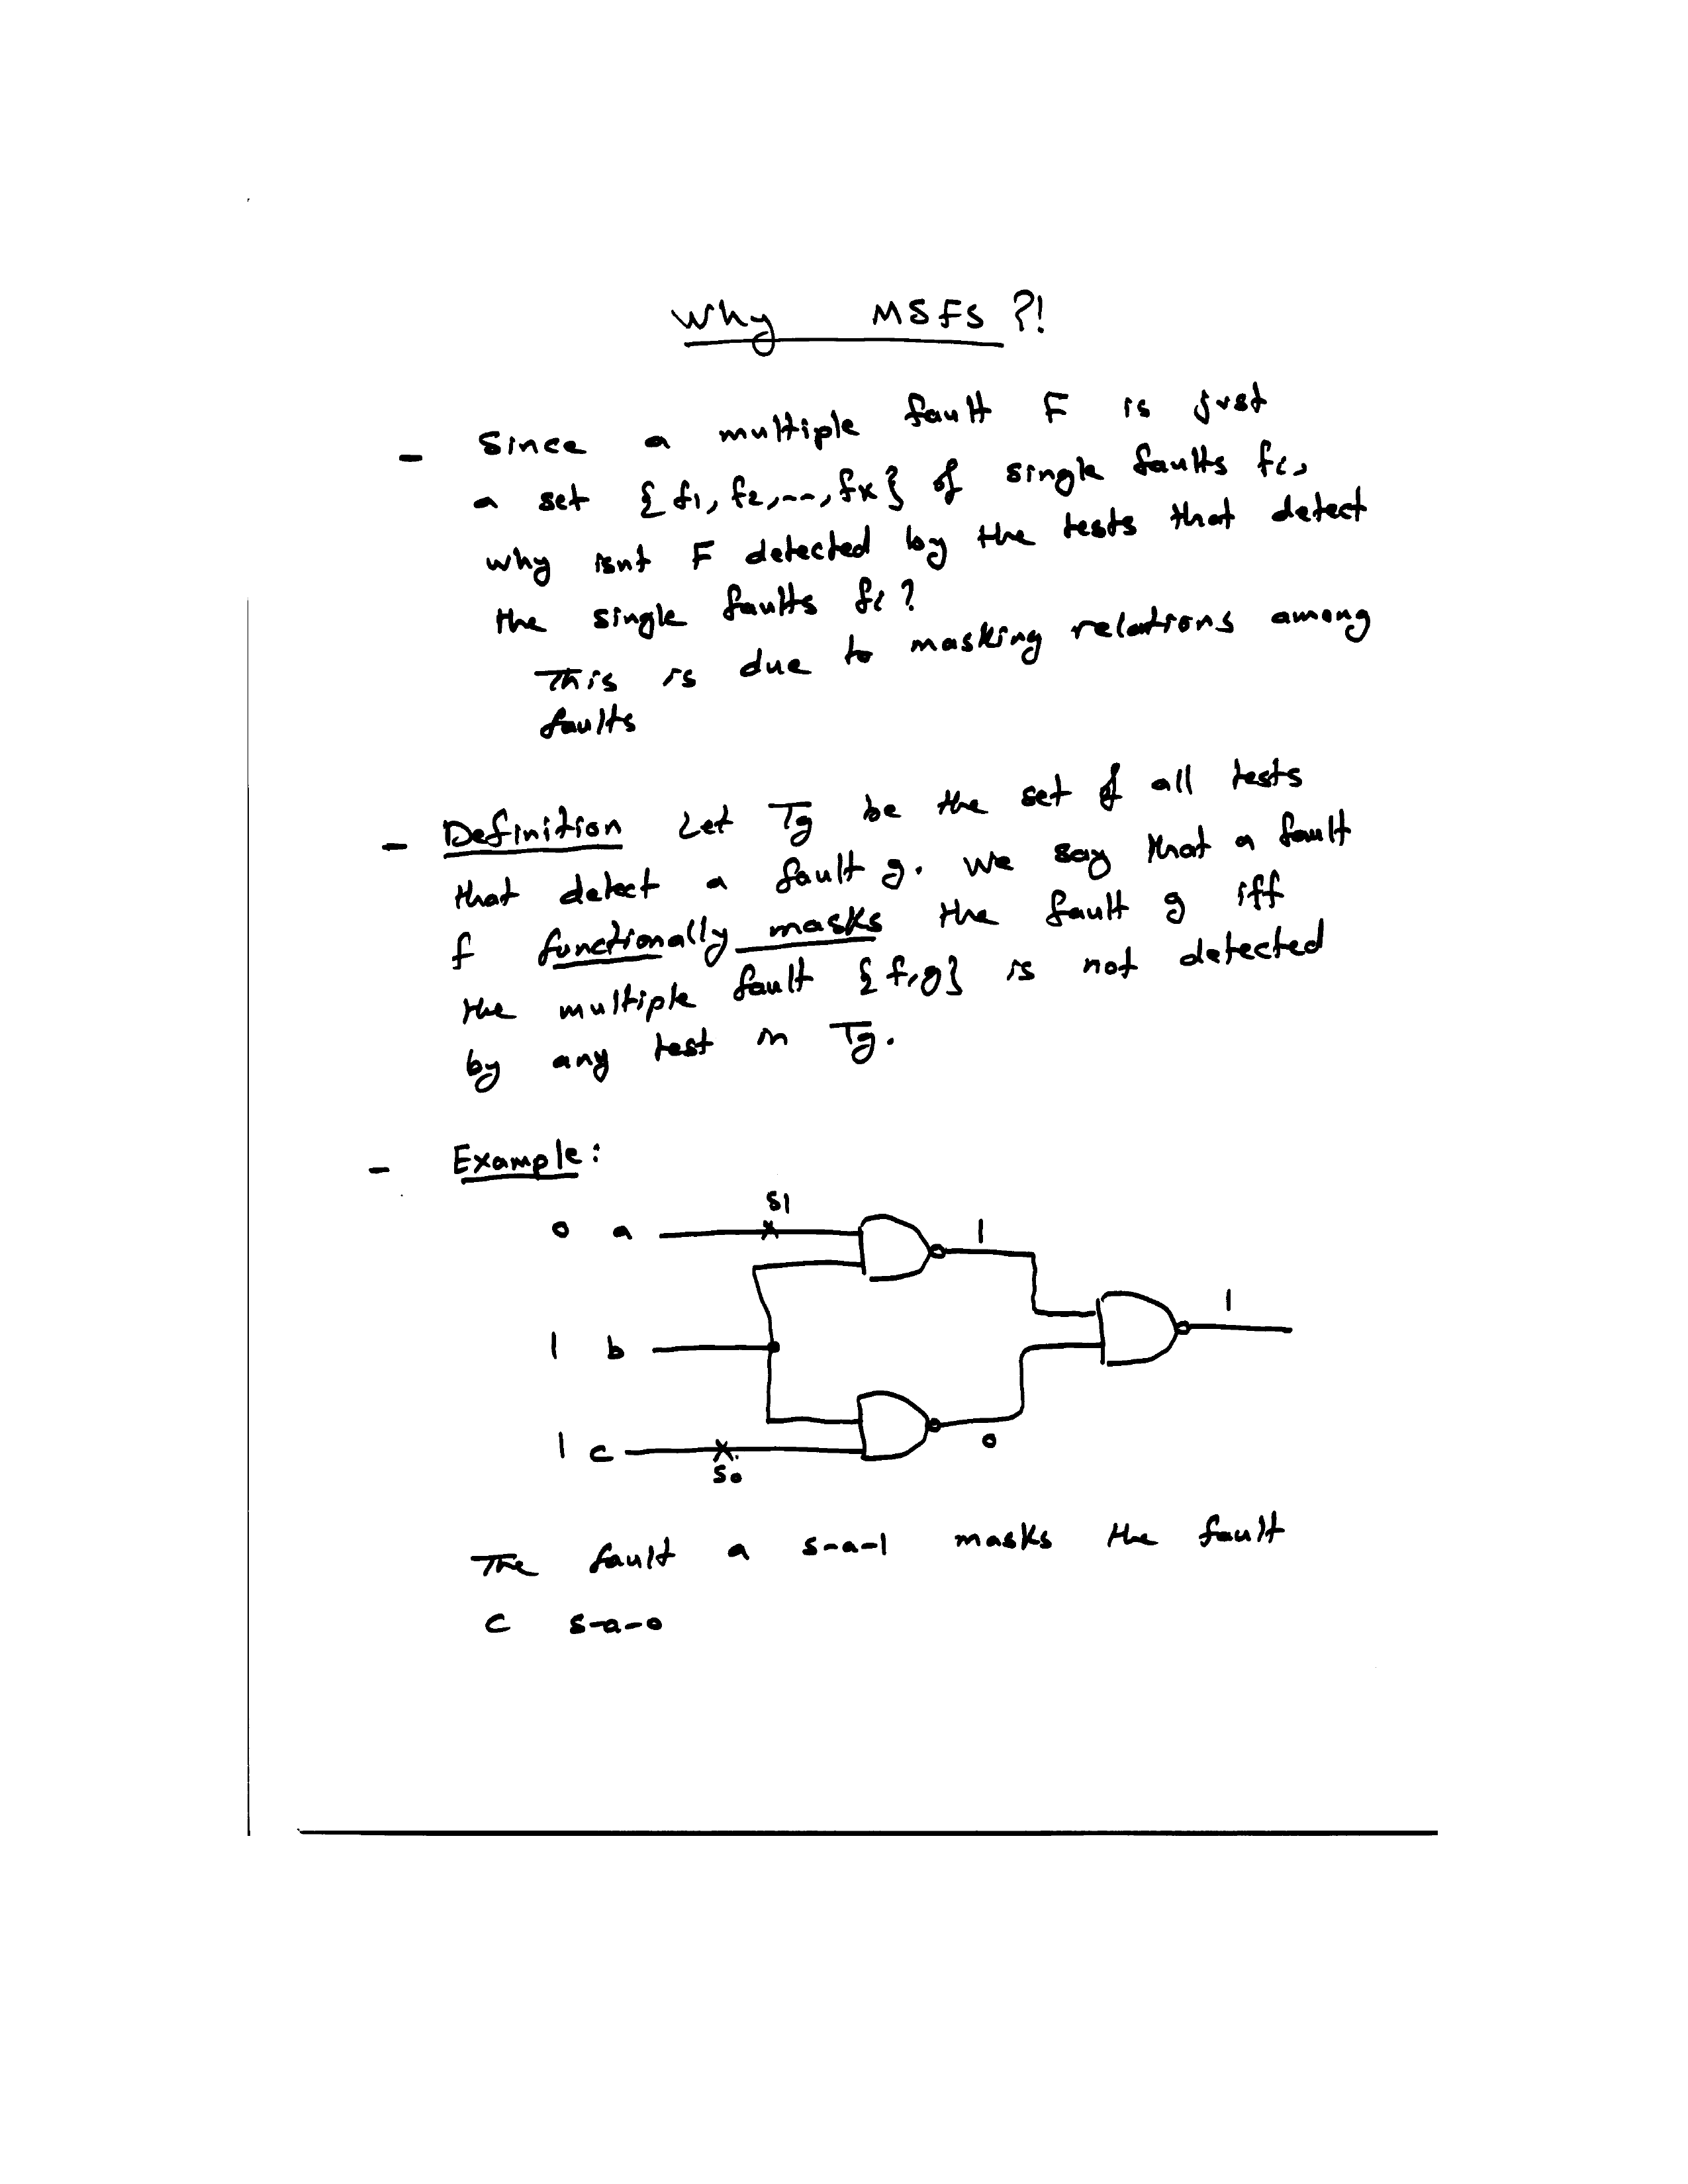 Why MSFS ?!
- Since a multiple fault F is just
a set {f1, f2,--, fk} of single faults fi,
why isnt F detected by the tests that detect
the single faults fi?
This is due to masking relations among
faults
- Definition Let Tg be the set of all tests
that detect a fault g. We say that a fault
f functionally masks the fault g iff
the multiple fault {f,g} is not detected
by any test in Tg.
- Example:
s1
0 a
1
1
1 b
1 c
0
s0
The fault a s-a-1 masks the fault
c s-a-0